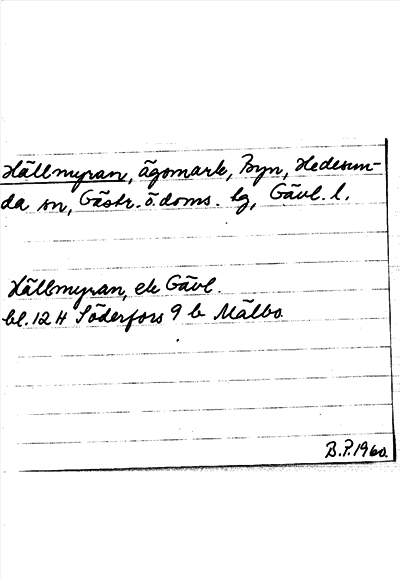 Hällmyran, ägomark, Byn, Hedesun-
da sn, Gästr. ö. doms. lg, Gävl. l.
Hällmyran, ek Gävl.
bl. 12 H Söderfors 9 b Mälbo
B.P. 1960.